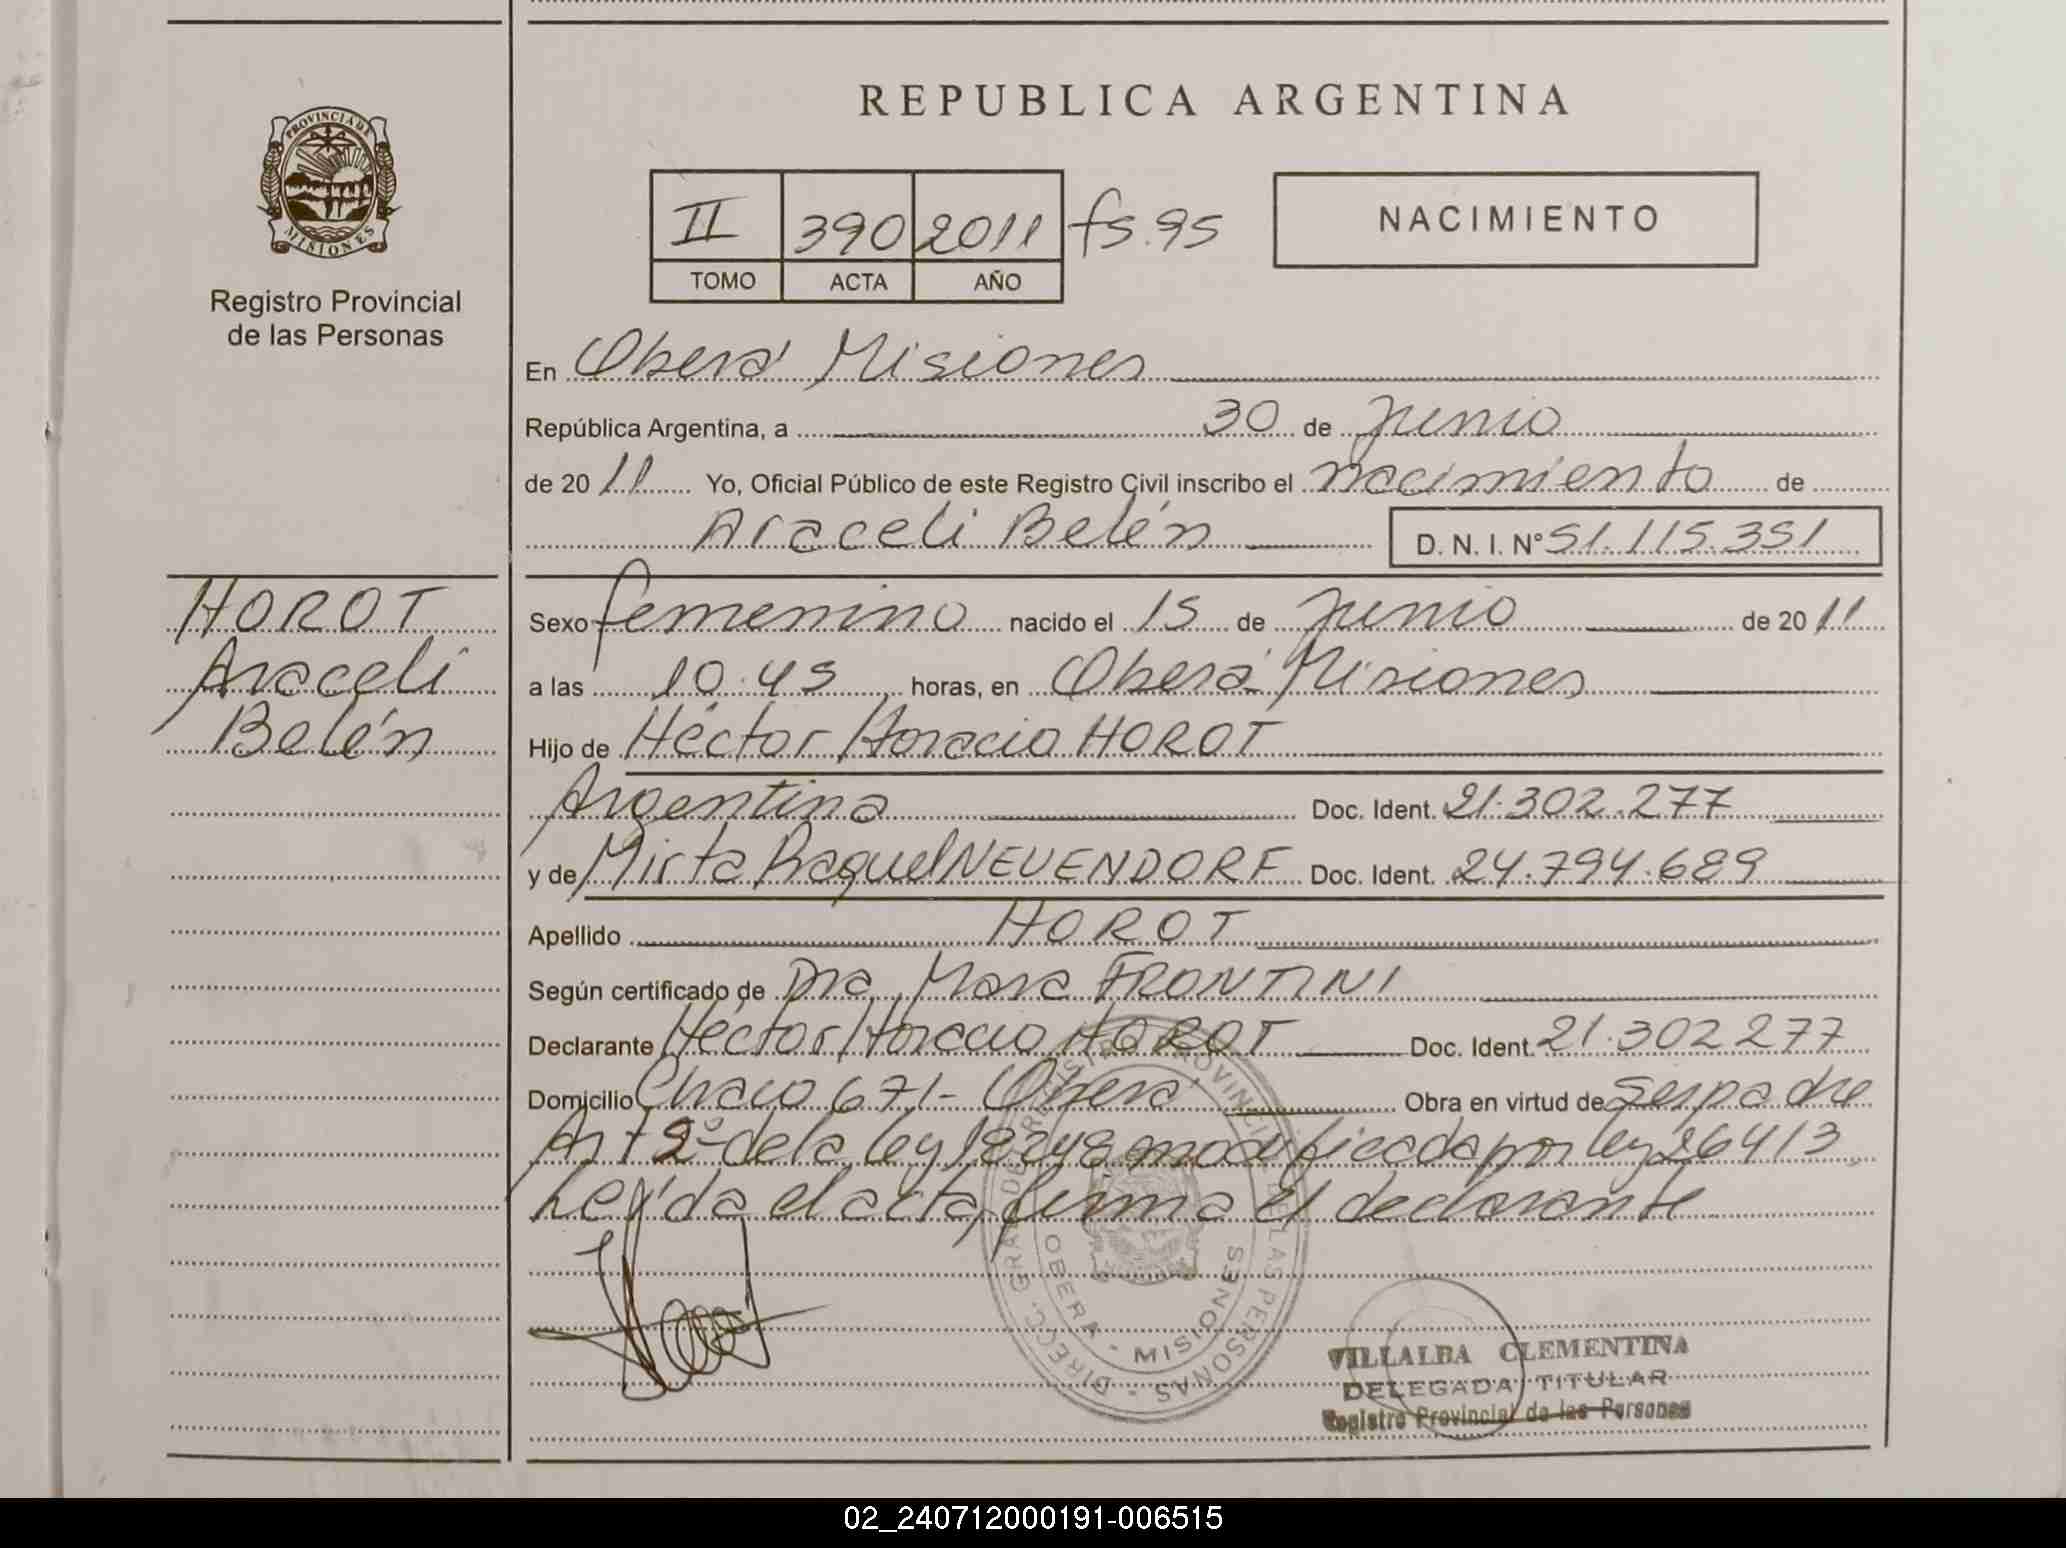 REPUBLICA ARGENTINA
PROVINCIA DE MISIONES
Registro Provincial
de las Personas
II 390 2011 fs. 95
TOMO ACTA AÑO
NACIMIENTO
En Oberá Misiones
República Argentina, a 30 de Junio
de 2011 Yo, Oficial Público de este Registro Civil inscribo el nacimiento de
Araceli Belén D. N. I. N° 51.115.351
HOROT
Araceli
Belén
Sexo femenino nacido el 15 de Junio de 2011
a las 10.45 horas, en Oberá Misiones
Hijo de Héctor Horacio HOROT
Argentina Doc. Ident. 21.302.277
y de Mirta Raquel NEUENDORF Doc. Ident. 24.794.689
Apellido HOROT
Según certificado de Dra. Mara FRONTINI
Declarante Héctor Horacio HOROT Doc. Ident. 21.302277
Domicilio Chaco 671- Oberá Obra en virtud de ser padre
Art 2° de la ley 18248 modificada por ley 26413.
Leída el acta, firma el declarante
REGISTRO PROVINCIAL DE LAS PERSONAS - DIRECC. GRAL. DE
OBERA - MISIONES
VILLALBA CLEMENTINA
DELEGADA TITULAR
Registro Provincial de las Personas
02_240712000191-006515